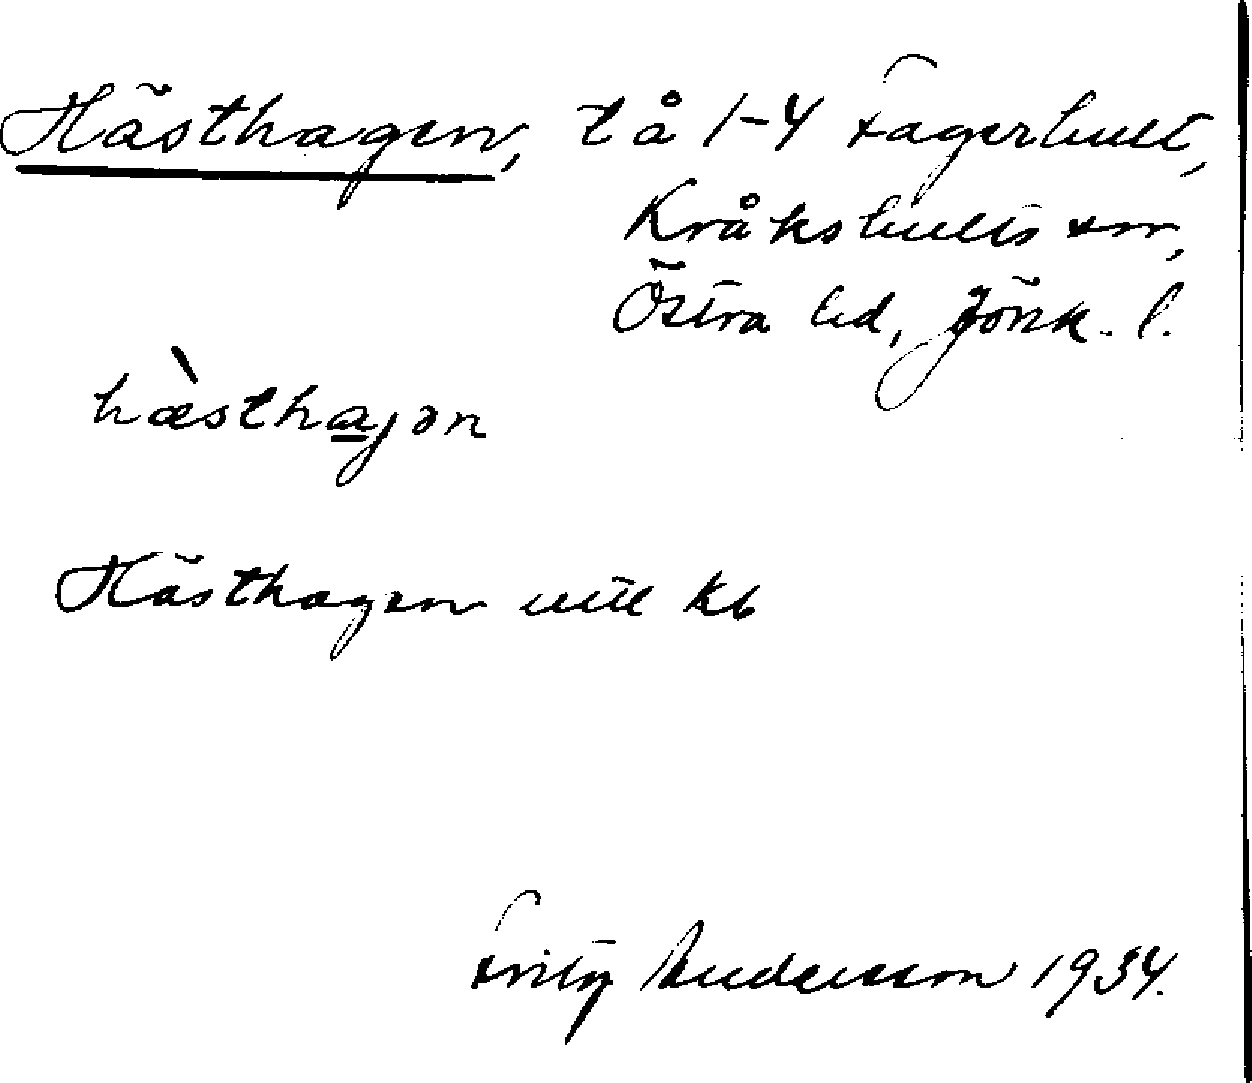 Hästhagen, tå 1-4 Fagerhult,
Kråkshults sn,
Östra hd, Jönk. l.
hæ̀sthajən
Hästhagen uttl Kb
Fritz Andersson 1934.